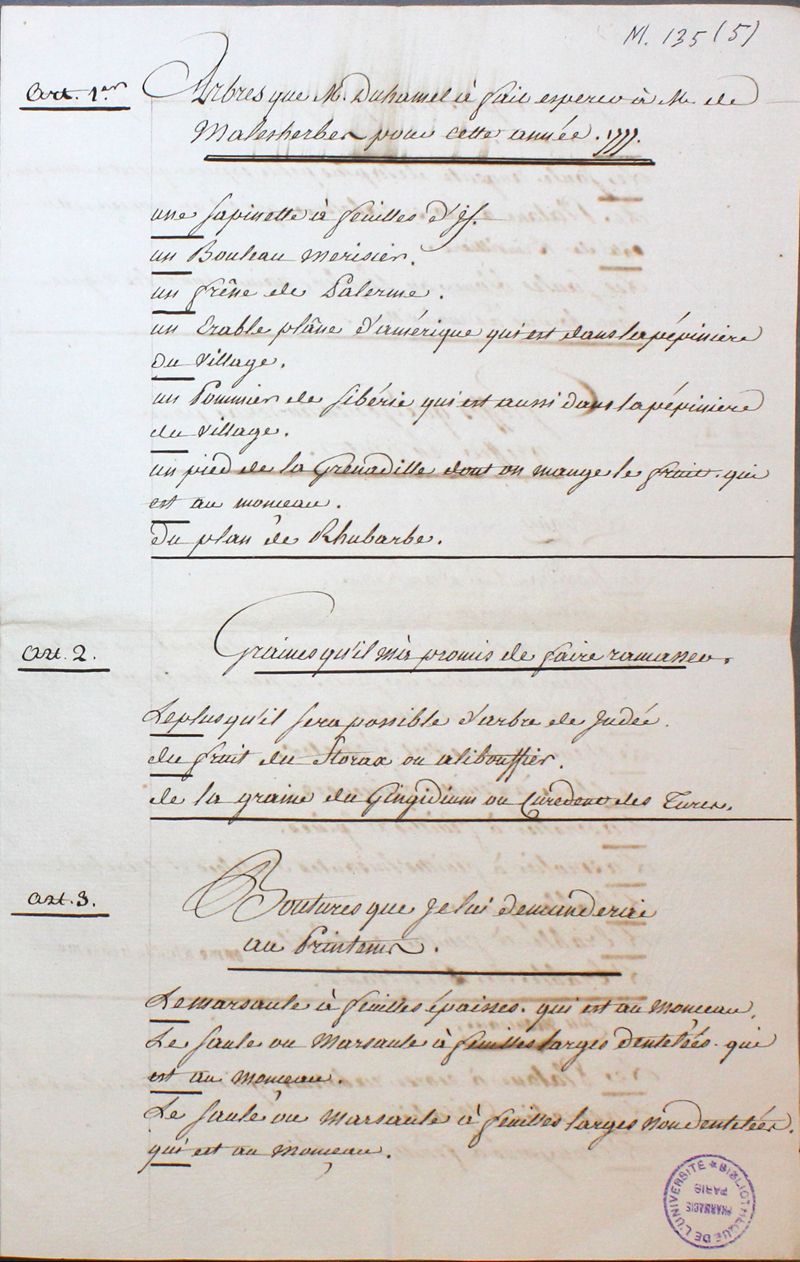 M. 135 (5)
Art. 1er
Arbres que M. Duhamel à fait esperer à M. de
Malesherbes pour cette année. 1777.
une sapinette à feuilles d'if.
un Bouleau merisier.
un frêne de Palerme.
un Erable plâne d'amérique qui est dans la pépiniere
du village.
un Pommier de sibérie qui est aussi dans la pépiniere
du village.
un pied de la Grenadille dont on mange le fruit. qui
est au monceau.
Du plan de Rhubarbe.
Art. 2.
Graines qu'il m'a promis de faire ramasser.
Le plus qu'il sera possible d'arbre de Judée.
du fruit du Storax ou alibouffier.
de la graine du Gingidium ou Curedent des Turcs.
Art. 3.
Boutures que je lui demanderai
au Printems.
Le marsaule à feuilles épaisses. qui est au Monceau.
Le saule ou Marsaule à feuilles larges dentelées. qui
est au monceau.
Le saule ou marsaule à feuilles larges non dentelées.
qui est au Monceau.
BIBLIOTHÈQUE DE L'UNIVERSITÉ
PARIS
PHARMACIE